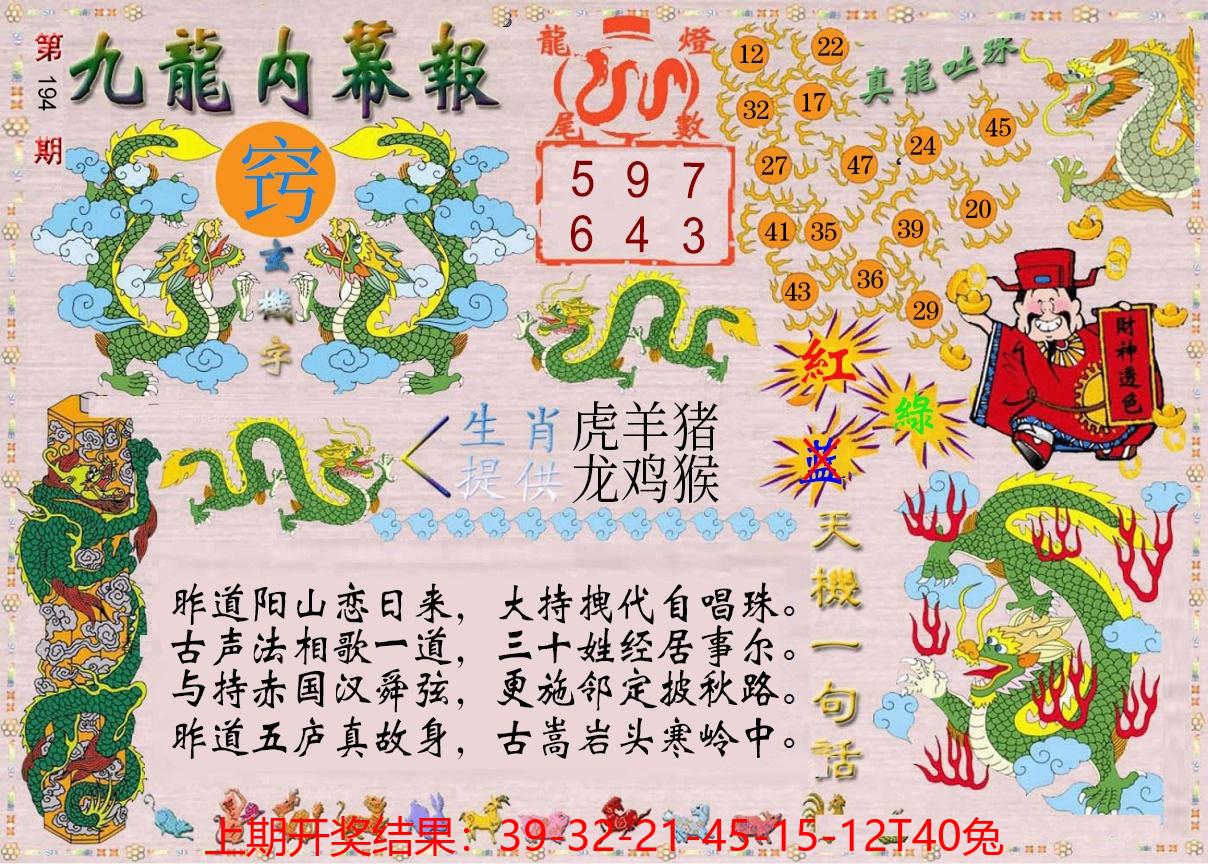 第194期
九龍内幕報
窍
玄機字
龍燈
尾數
5 9 7
6 4 3
真龍吐珠
12 22
32 17
24 45
27 47
41 35 39 20
43 36 29
財神透色
紅
綠
蓝
生肖 虎羊猪
提供 龙鸡猴
天機一句話
昨道阳山恋日来，大持拽代自唱珠。
古声法相歌一道，三十姓经居事尔。
与持赤国汉舜弦，更施邻定披秋路。
昨道五庐真故身，古嵩岩头寒岭中。
上期开奖结果：39-32-21-45-15-12T40兔